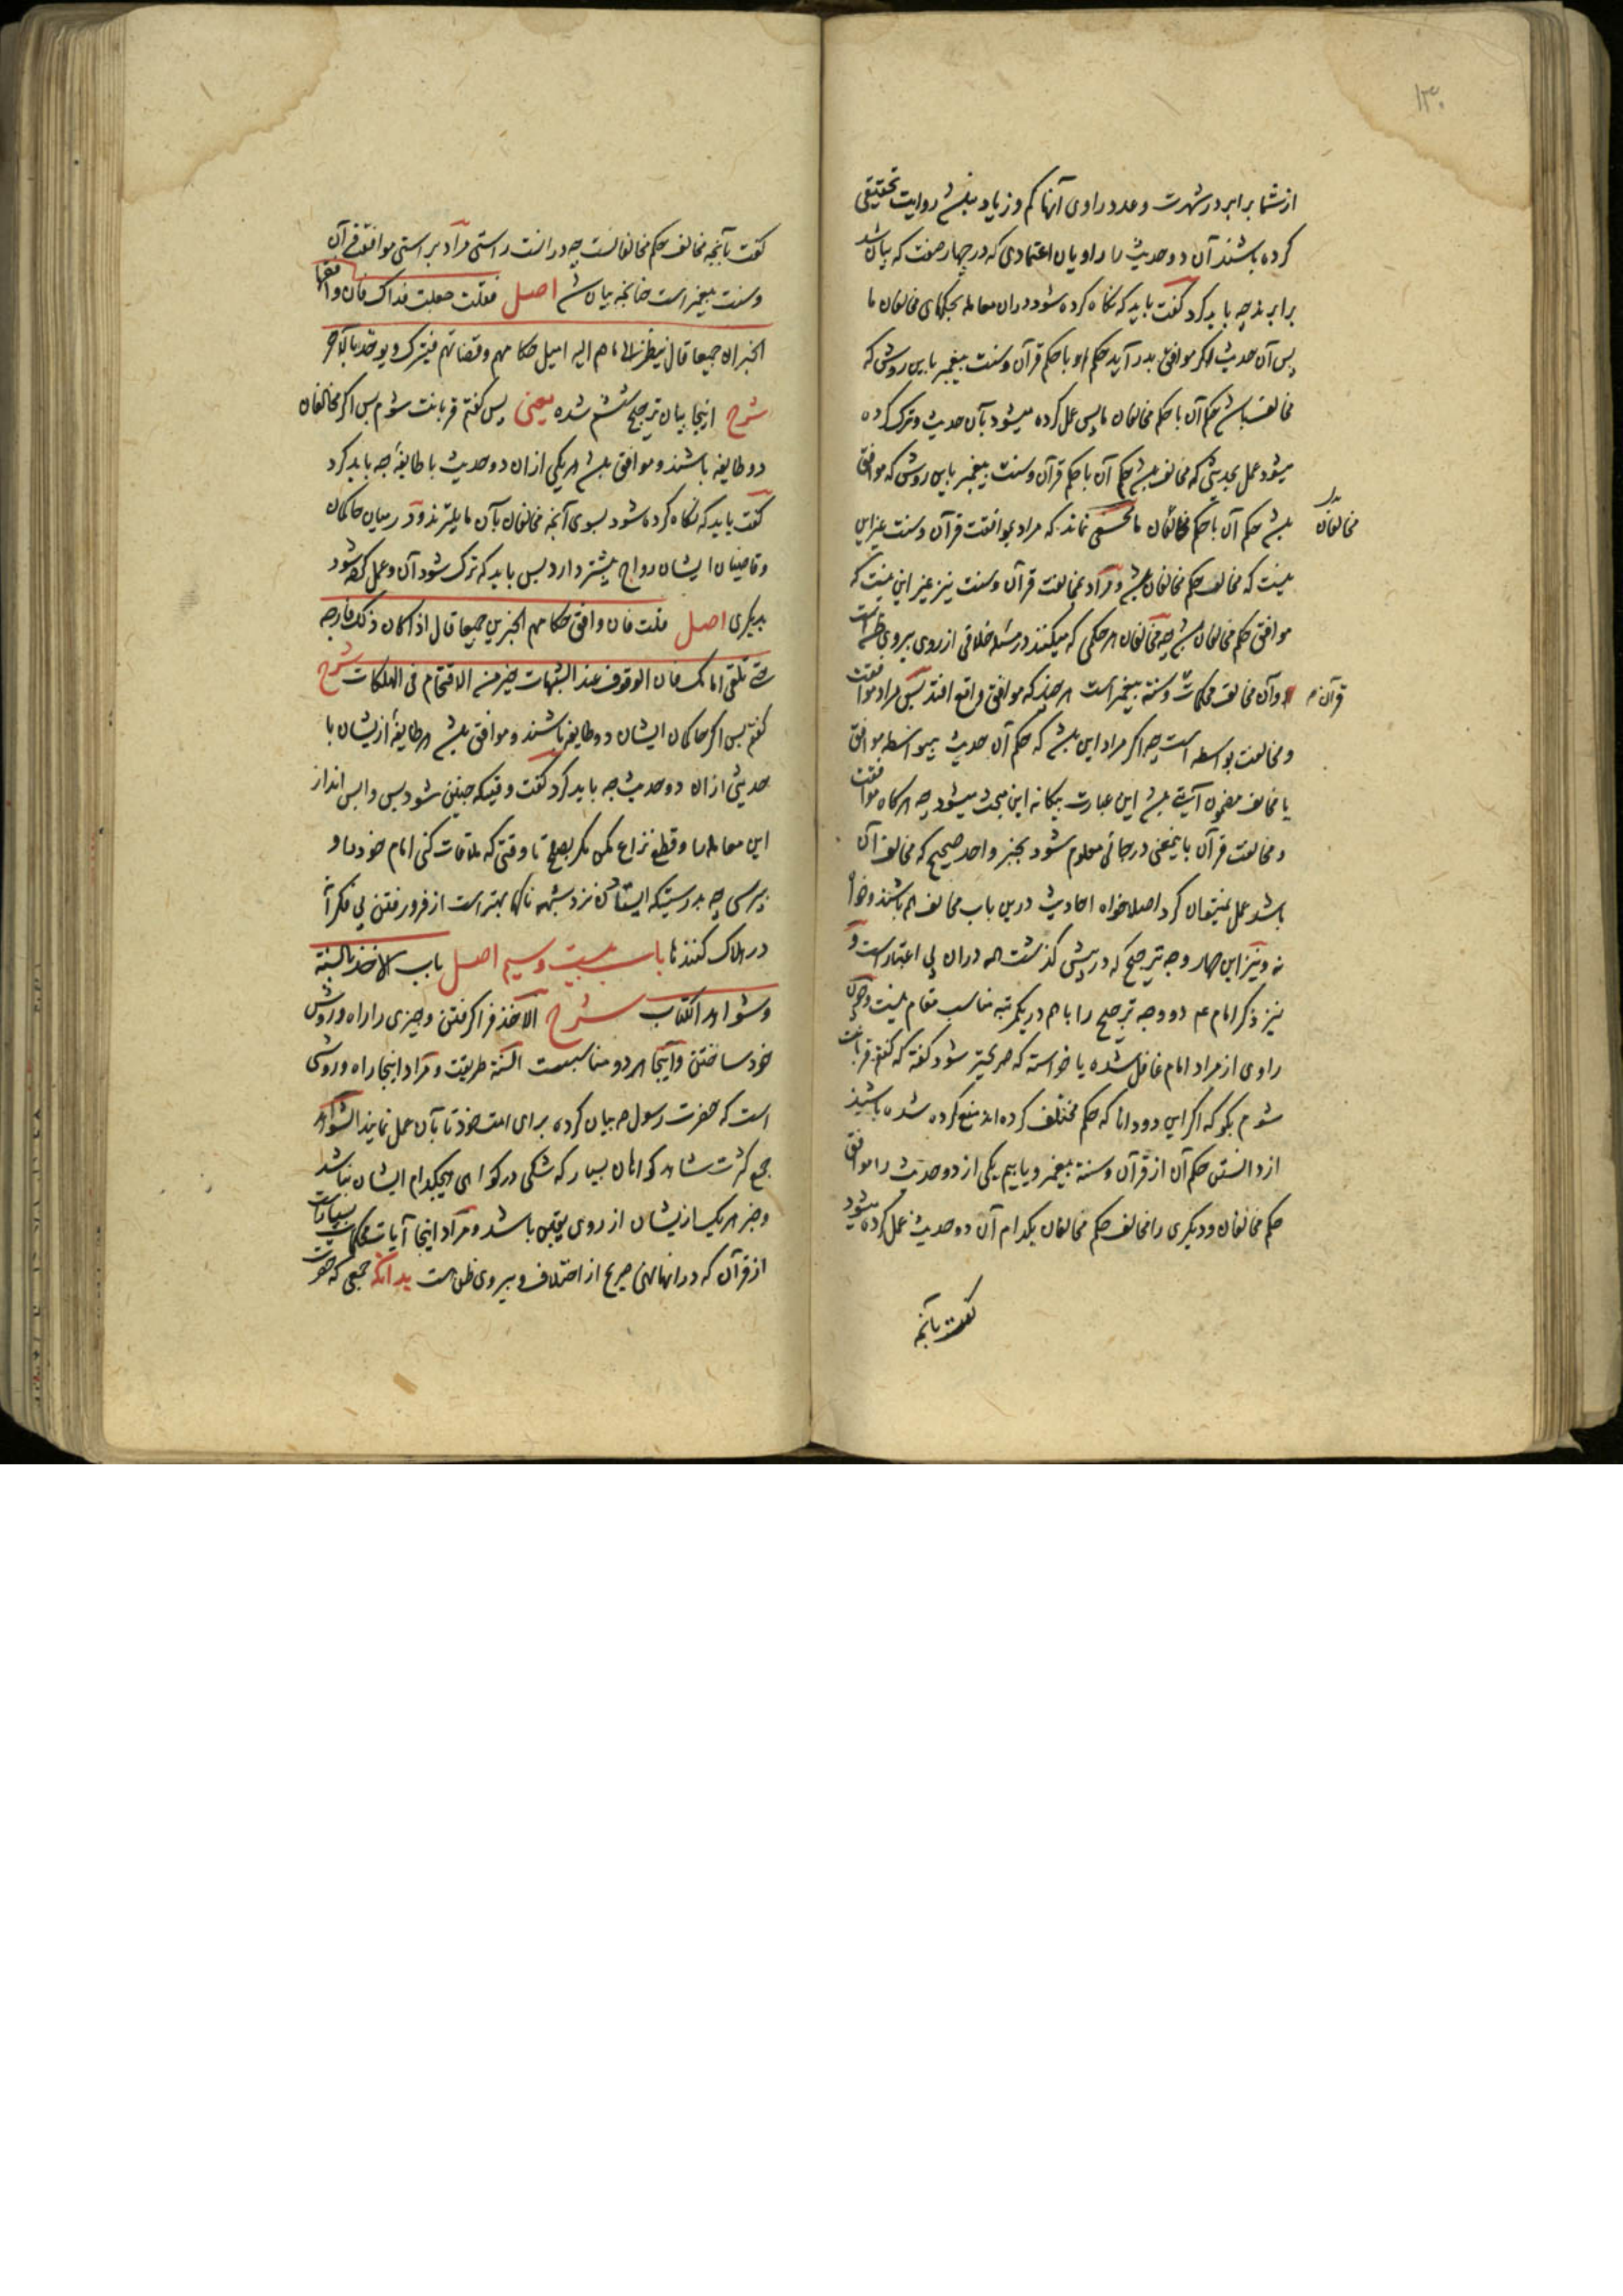 ۱۳۰
از شما برابر در شهرت و عدد راوی آنها کم و زیاد باشد روایت تحقیقی
کرده باشند آن دو حدیث را راویان اعتمادی که در چهار صفت که بیان شد
برابرند چه باید کرد گفت باید که نگاه کرده شود در آن معامله بحکمهای مخالفان ما
پس آن حدیث اگر موافق بدر آید حکم او با حکم قرآن و سنت پیغمبر باین روش که
مخالف باشد حکم آن با حکم مخالفان ما پس عمل کرده میشود بآن حدیث و ترک کرده
میشود عمل بحدیثی که مخالف باشد حکم آن با حکم قرآن و سنت پیغمبر باین روش که موافق
باشد حکم آن با حکم مخالفان ما مخفی نماند که مراد بموافقت قرآن و سنت غیر این
مخالفان
نیست که مخالف حکم مخالفان باشد و مراد بمخالفت قرآن و سنت نیز غیر این نیست که
موافق حکم مخالفان باشد چه مخالفان هر حکمی که میکنند در مسئله خلافی از روی پیروی ظن است
و آن مخالف محکمات و سنة پیغمبر است هر چند که موافق واقع افتد پس مراد موافقت
قرآن
و مخالفت بواسطه است چه اگر مراد این باشد که حکم آن حدیث بیواسطه موافق
یا مخالف مضمون آیتی باشد این عبارت بیگانه این مبحث میشود چه هرگاه موافقت
و مخالفت قرآن باینمعنی در جائی معلوم شود بخبر واحد صحیح که مخالف آن
باشد عمل نمیتوان کرد اصلا خواه احادیث درین باب مخالف هم باشند و خواه
نه و نیز این چهار وجه ترجیح که در پیش گذشت همه در آن بی اعتبار است و
نیز ذکر امام عم دو وجه ترجیح را با هم در یکمرتبه مناسب مقام نیست و چون
راوی از مراد امام غافل شده یا خواسته که صریحتر شود گفته که گفتم قربانت
شوم بگو که اگر این دو دانا که حکم مختلف کرده‌اند منع کرده شده باشند
از دانستن حکم آن از قرآن و سنة پیغمبر و یابیم یکی از دو حدیث را موافق
حکم مخالفان و دیگری را مخالف حکم مخالفان بکدام آن دو حدیث عمل کرده میشود
گفت بآنچه
گفت بآنچه مخالف حکم مخالفانست چه در آنست راستی مراد براستی موافقت قرآن
و سنت پیغمبر است چنانچه بیان شد اصل فقلت جعلت فداک فان وافقها
الخبران جمیعا قال ینظر الی ما هم الیه امیل حکامهم و قضاتهم فیترک و یوخذ بالآخر
شرح اینجا بیان ترجیح ششم شده یعنی پس گفتم قربانت شوم پس اگر مخالفان
دو طایفه باشند و موافق باشد هر یکی از آن دو حدیث با طایفهٔ چه باید کرد
گفت باید که نگاه کرده شود بسوی آنچه مخالفان بآن مایلترند و در میان حاکمان
و قاضیان ایشان رواج بیشتر دارد پس باید که ترک شود آن و عمل کرده شود
بدیگری اصل قلت فان وافق حکامهم الخبرین جمیعا قال اذا کان ذلک فارجه
حتی تلقی امامک فان الوقوف عند الشبهات خیر من الاقتحام فی الهلکات شرح
گفتم پس اگر حاکمان ایشان دو طایفه باشند و موافق باشد هر طایفهٔ ازیشان با
حدیثی از آن دو حدیث چه باید کرد گفت وقتیکه چنین شود پس واپس انداز
این معامله را و قطع نزاع مکن مگر بصلح تا وقتی که ملاقات کنی امام خود را و
بپرسی چه بدرستیکه ایستادن نزد شبهه ناکها بهتر است از فرو رفتن بی فکرانه
در هلاک کنندها باب بیست و سیم اصل باب الاخذ بالسنة
و شواهد الکتاب شرح الاخذ فرا گرفتن و چیزی را راه و روش
خود ساختن و اینجا هر دو مناسبست السنة طریقت و مراد اینجا راه و روشی
است که حضرت رسول ص بیان کرده برای امت خود تا بآن عمل نمایند الشواهد
جمع کثرت شاهد گواهان بسیار که شکی در گواهی هیچکدام ایشان نباشد
و خبر هر یک ازیشان از روی یقین باشد و مراد اینجا آیات محکمات بسیار است
از قرآن که در آنها نهی صریح از اختلاف و پیروی ظن است بدانکه جمعی که حضرت